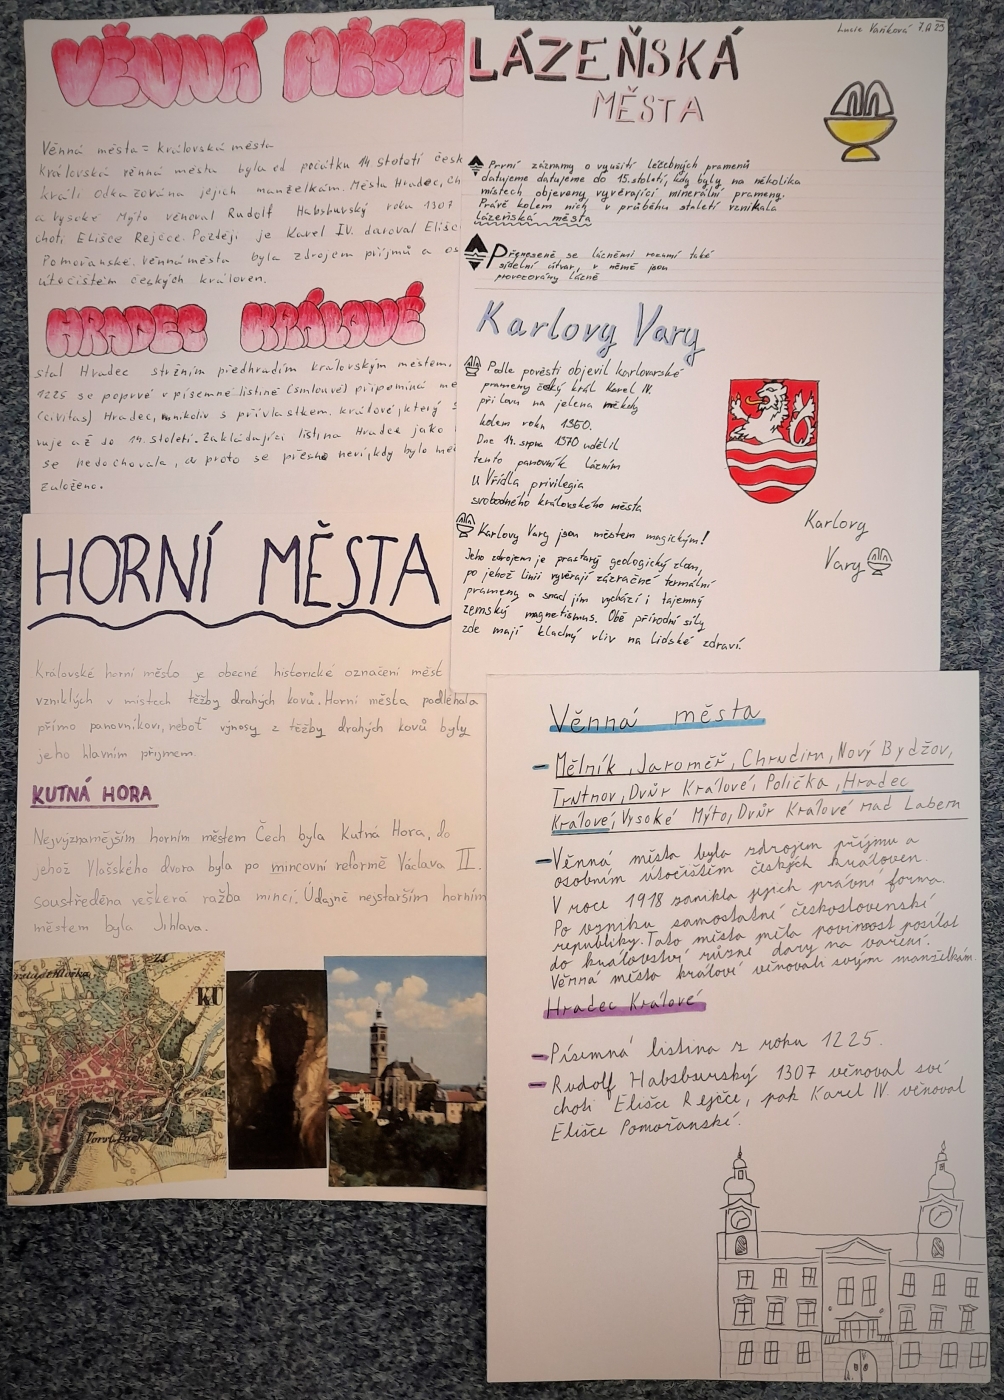 VĚNNÁ MĚSTA
Věnná města = královská města
Královská věnná města byla od počátku 14. století česk
králi odkazována jejich manželkám. Města Hradec, Ch
a Vysoké Mýto věnoval Rudolf Habsburský roku 1307
choti Elišce Rejčce. Později je Karel IV. daroval Elišc
Pomořanské. Věnná města byla zdrojem příjmů a os
útočištěm českých královen.
HRADEC KRÁLOVÉ
stal Hradec stržním předhradím královským městem.
1225 se poprvé v písemné listině (smlouvě) připomíná mě
(civitas) Hradec, nikoliv s přívlastkem králové, který s
vuje až so 14. století. Zakládající listina Hradce jako
se nedochovala, a proto se přesně neví, kdy bylo mě
založeno.
Lucie Vaňková 7.A 23
LÁZEŇSKÁ
MĚSTA
První záznamy o využití léčebných pramenů
datujeme datujeme do 15.století, kdy byly na několika
místech objeveny vyvěrající minerální prameny.
Právě kolem nich v průběhu století vznikala
lázeňská města
Přeneseně se lázněmi rozumí také
sídelní útvar, v němž jsou
provozovány lázně
Karlovy Vary
Podle pověsti objevil karlovarské
prameny český král Karel IV.
při lovu na jelena někdy
kolem roku 1350.
Dne 14. srpna 1370 udělil
tento panovník lázním
u Vřídla privilegia
svobodného královského města
Karlovy Vary jsou městem magickým!
Jeho zdrojem je prastarý geologický zlom,
po jehož linii vyvěrají zázračné termální
prameny a snad jím vychází i tajemný
zemský magnetismus. Obě přírodní síly
zde mají kladný vliv na lidské zdraví.
Karlovy
Vary
HORNÍ MĚSTA
Královské horní město je obecné historické označení měst
vzniklých v místech těžby drahých kovů. Horní města podléhala
přímo panovníkovi, neboť výnosy z těžby drahých kovů byly
jeho hlavním příjmem.
KUTNÁ HORA
Nejvýznamějším horním městem Čech byla Kutná Hora, do
jehož Vlašského dvora byla po mincovní reformě Václava II.
soustředěna veškerá ražba mincí. Údajně nejstarším horním
městem byla Jihlava.
KU
Věnná města
- Mělník, Jaroměř, Chrudim, Nový Bydžov,
Trutnov, Dvůr Králové, Polička, Hradec
Králové, Vysoké Mýto, Dvůr Králové nad Labem
- Věnná města byla zdrojem příjmu a
osobním útočištěm českých královen.
V roce 1918 zanikla jejich právní forma.
Po vzniku samostatné československé
republiky. Tato města měla povinnost posílat
do království různé dary na vaření.
Věnná města králové věnovali svým manželkám.
Hradec Králové
- Písemná listina z roku 1225.
- Rudolf Habsburský 1307 věnoval své
choti Elišce Rejčce, pak Karel IV. věnoval
Elišce Pomořanské.